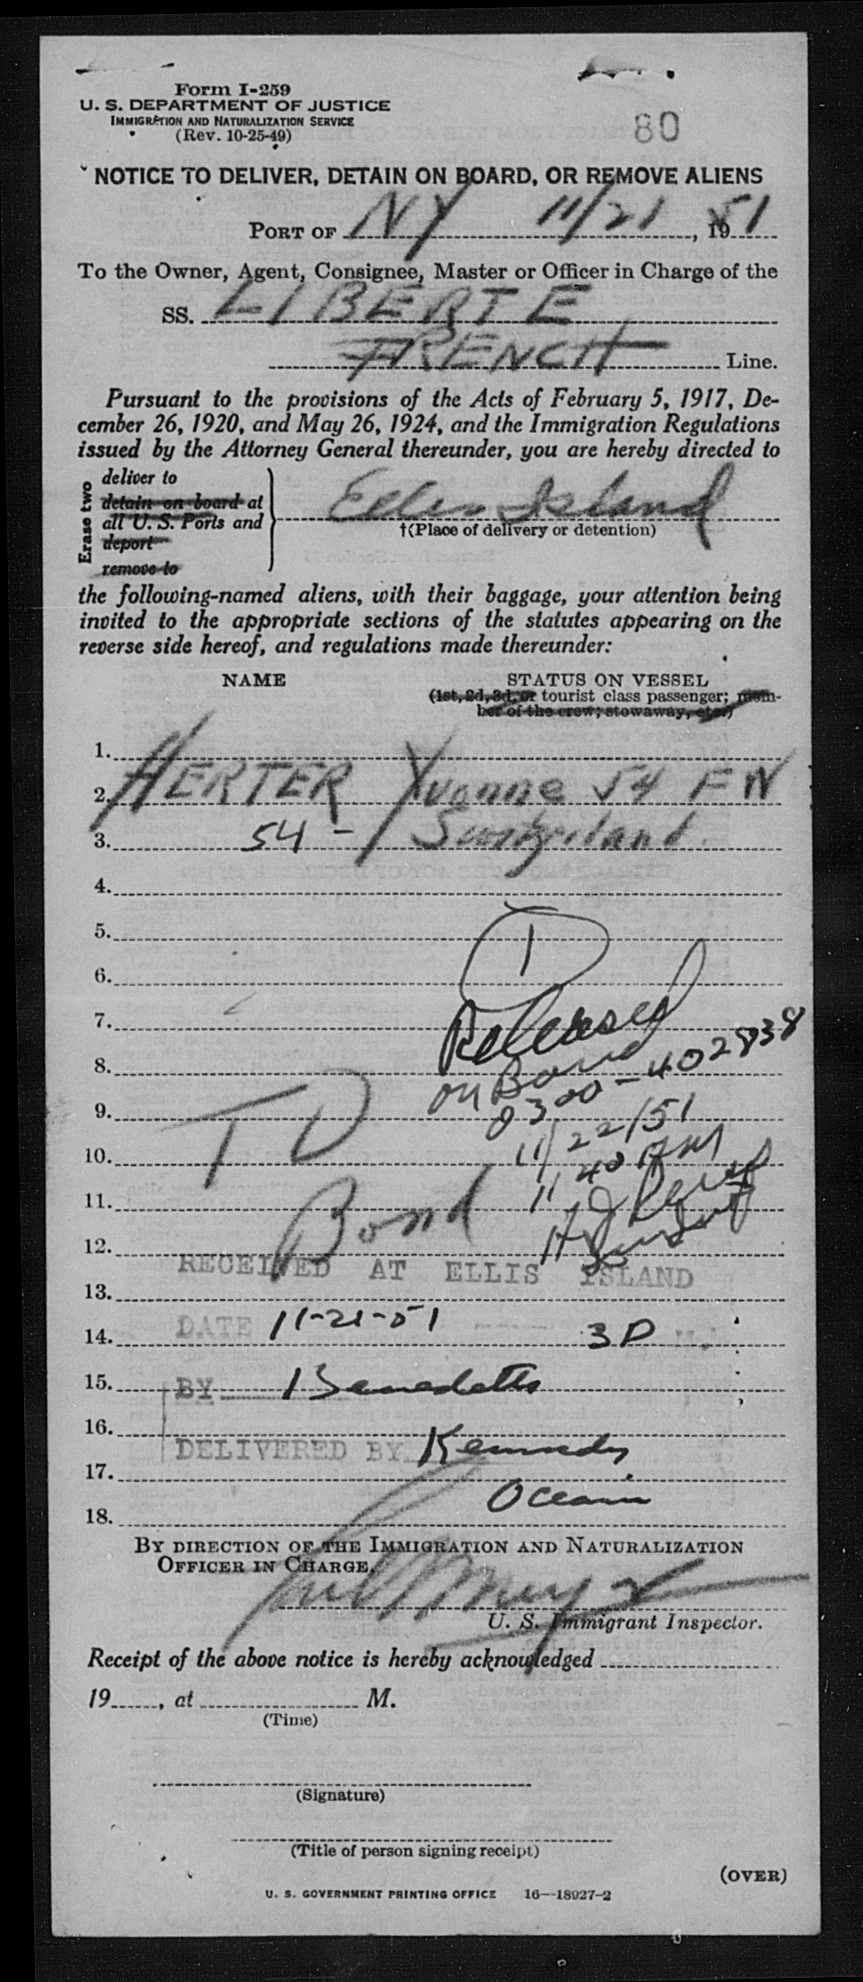 Form I-259
U. S. DEPARTMENT OF JUSTICE
IMMIGRATION AND NATURALIZATION SERVICE
(Rev. 10-25-49)
80
NOTICE TO DELIVER, DETAIN ON BOARD, OR REMOVE ALIENS
PORT OF NY 11/21, 1951
To the Owner, Agent, Consignee, Master or Officer in Charge of the
SS. LIBERTE
FRENCH Line.
Pursuant to the provisions of the Acts of February 5, 1917, De-
cember 26, 1920, and May 26, 1924, and the Immigration Regulations
issued by the Attorney General thereunder, you are hereby directed to
Erase two
deliver to
detain on board at
all U. S. Ports and
deport
remove to
Ellis Island
†(Place of delivery or detention)
the following-named aliens, with their baggage, your attention being
invited to the appropriate sections of the statutes appearing on the
reverse side hereof, and regulations made thereunder:
NAME STATUS ON VESSEL
(1st, 2d, 3d, or tourist class passenger; mem-
ber of the crew; stowaway, etc.)
1.
2. HERTER Yvonne 54 F N
3. 54 - Switzerland.
4.
5. 1
6.
7. Released
8. on Bond
0300-402838
9.
11/22/51
10. T D
11 40 AM
11. Bond
12.
RECEIVED AT ELLIS ISLAND
13.
DATE 11-21-51 3D M.
14.
15. BY Benedetto
16.
DELIVERED BY Kennedy
17.
Ocean
18.
BY DIRECTION OF THE IMMIGRATION AND NATURALIZATION
OFFICER IN CHARGE,
U. S. Immigrant Inspector.
Receipt of the above notice is hereby acknowledged
19 , at M.
(Time)
(Signature)
(Title of person signing receipt)
(OVER)
U. S. GOVERNMENT PRINTING OFFICE 16—18927-2